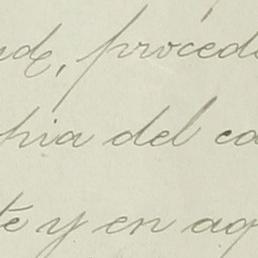 ud, procede
pia del co
te y en aq